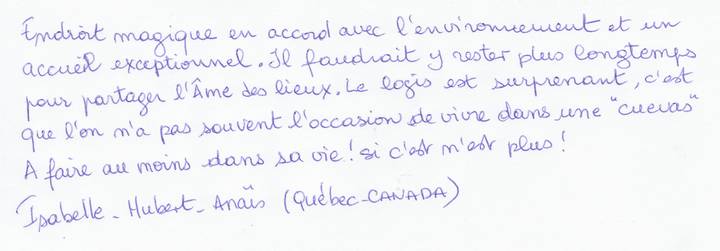 Endroit magique en accord avec l'environnement et un
accueil exceptionnel. Il faudrait y rester plus longtemps
pour partager l'Âme des lieux. Le logis est surprenant, c'est
que l'on n'a pas souvent l'occasion de vivre dans une "cuevas"
A faire au moins dans sa vie! si c'est n'est plus!
Isabelle - Hubert - Anaïs (Québec-CANADA)